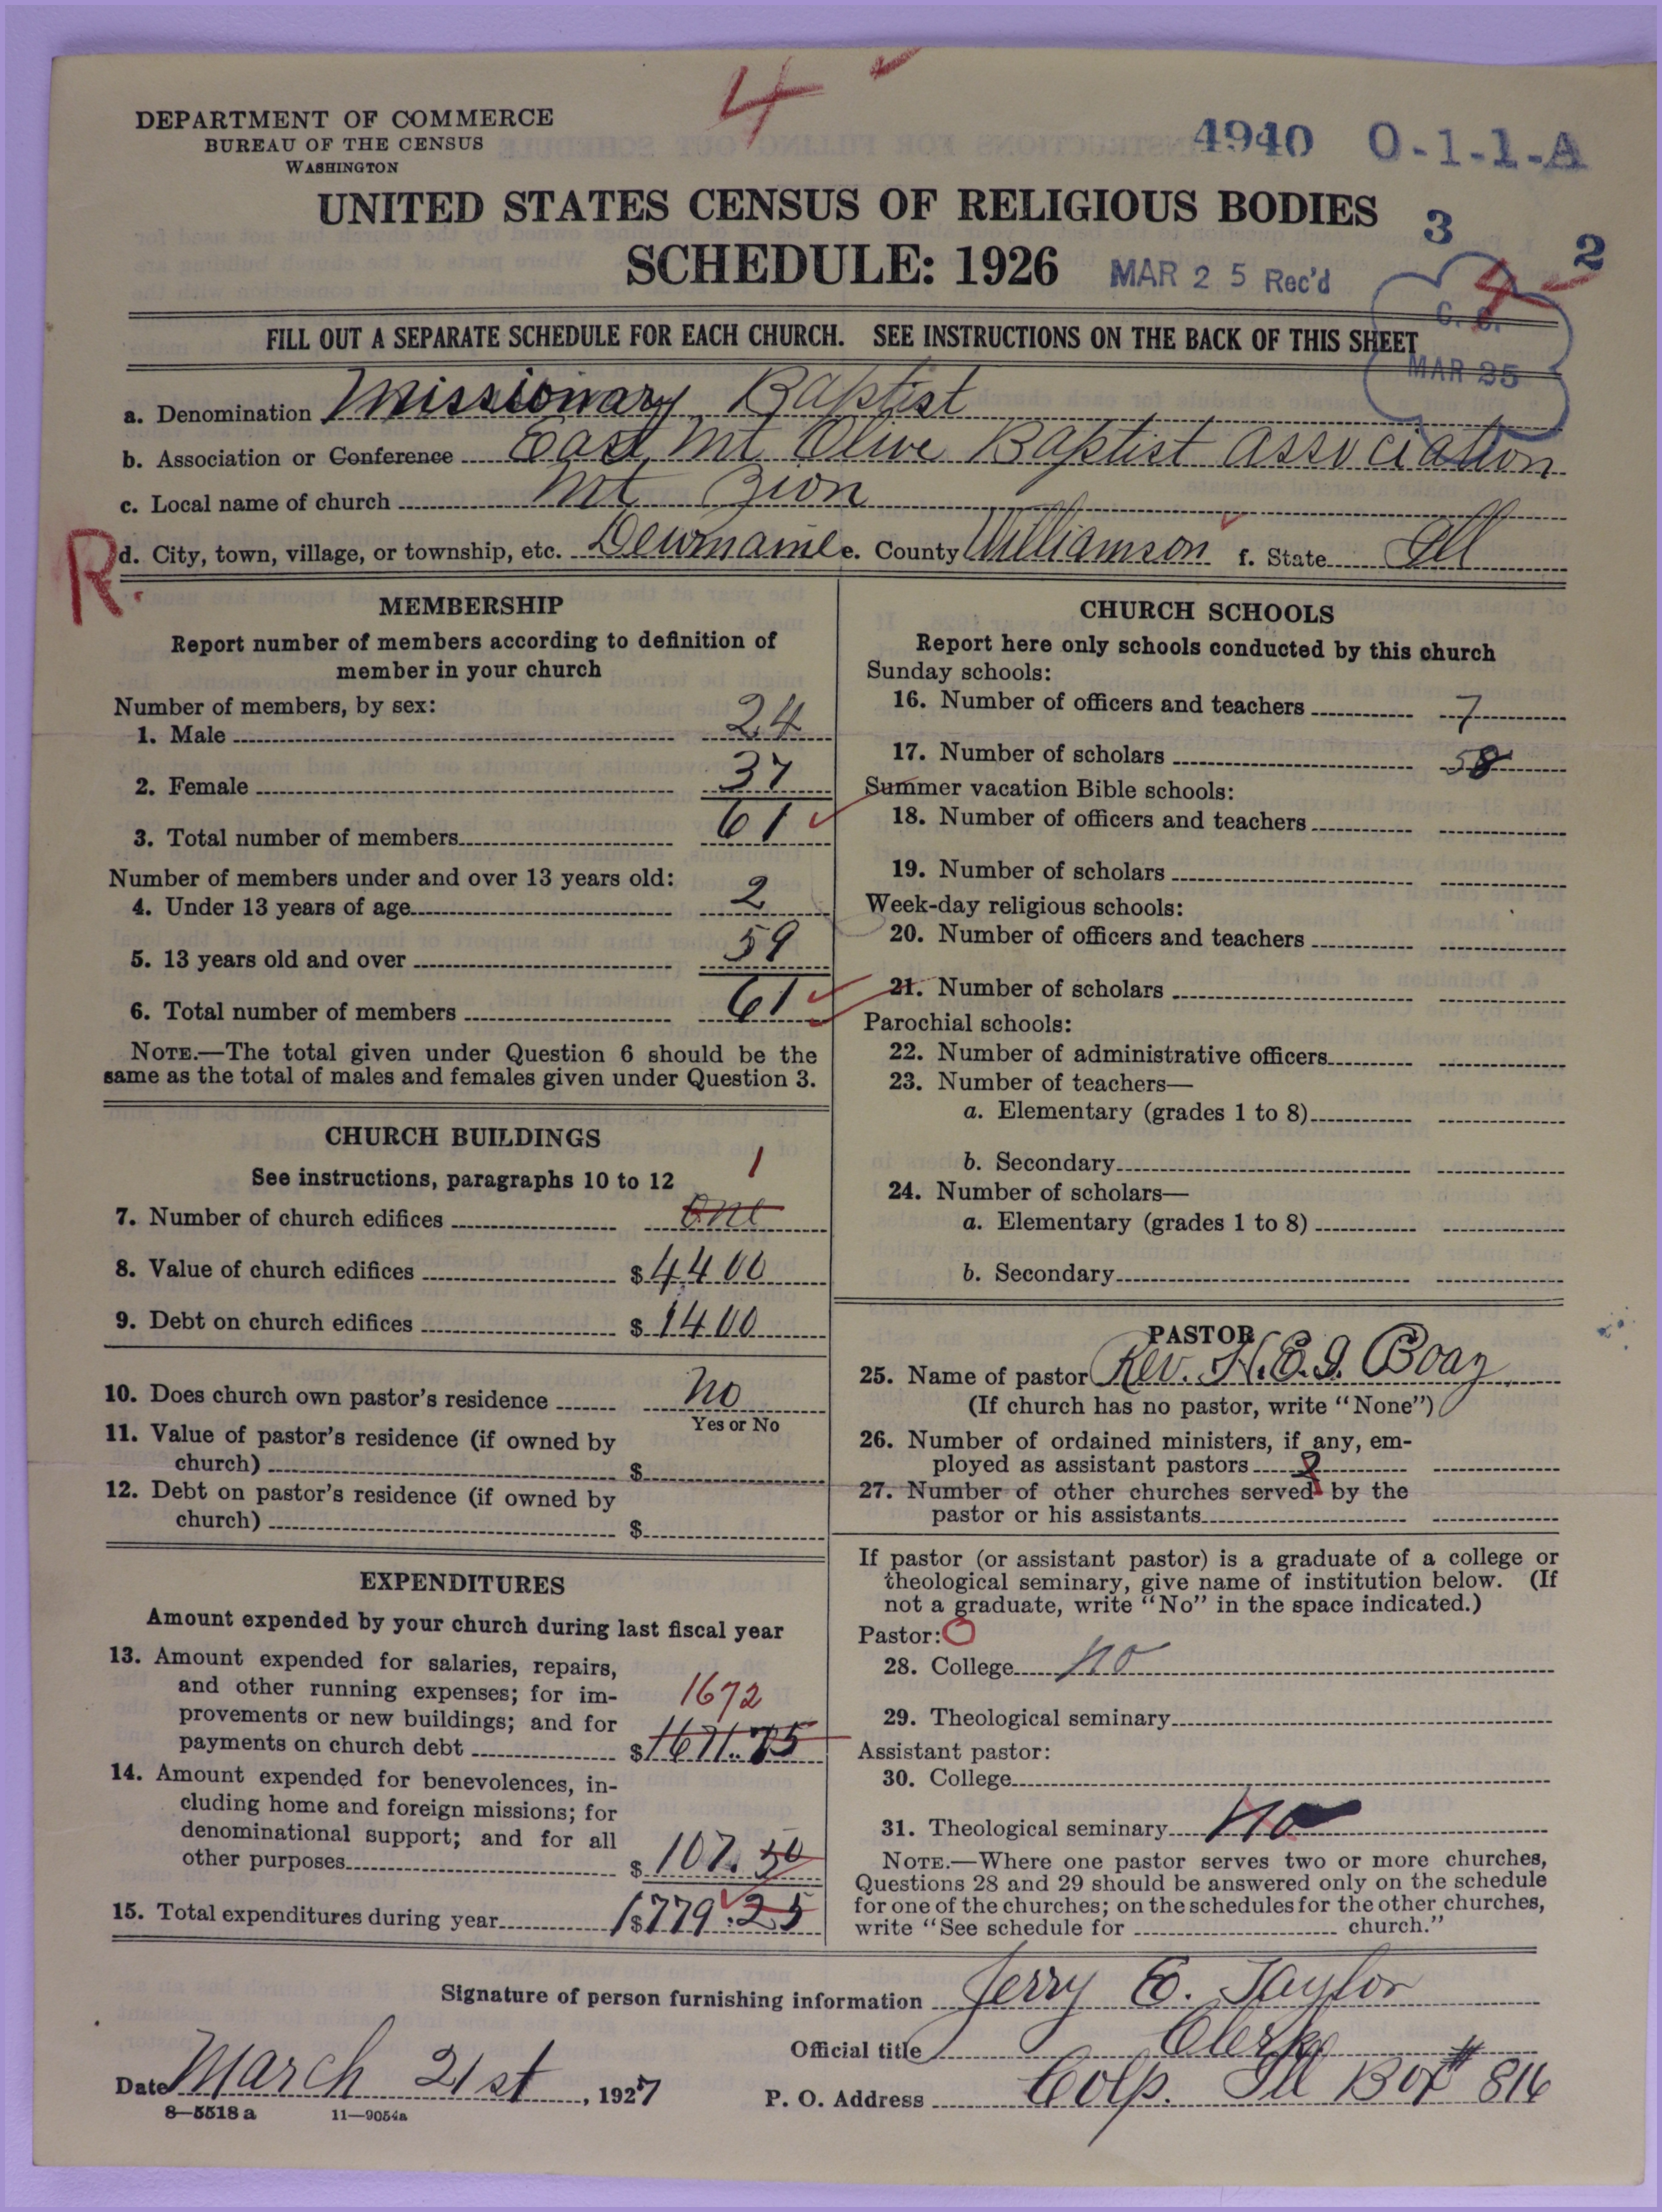 4
DEPARTMENT OF COMMERCE
BUREAU OF THE CENSUS
WASHINGTON
4940 0-1-1-A
UNITED STATES CENSUS OF RELIGIOUS BODIES
SCHEDULE: 1926
MAR 25 Rec'd
3
4
2
C. C.
MAR 25
FILL OUT A SEPARATE SCHEDULE FOR EACH CHURCH. SEE INSTRUCTIONS ON THE BACK OF THIS SHEET
a. Denomination Missionary Baptist
b. Association or Conference East Mt Olive Baptist Association
c. Local name of church Mt Zion
R. d. City, town, village, or township, etc. Dewmaine e. County Williamson f. State Ill
MEMBERSHIP
Report number of members according to definition of
member in your church
Number of members, by sex:
1. Male 24
2. Female 37
3. Total number of members 61
Number of members under and over 13 years old:
4. Under 13 years of age 2
5. 13 years old and over 59
6. Total number of members 61
NOTE.—The total given under Question 6 should be the
same as the total of males and females given under Question 3.
CHURCH BUILDINGS
See instructions, paragraphs 10 to 12
1
7. Number of church edifices One
8. Value of church edifices $4400
9. Debt on church edifices $1400
10. Does church own pastor's residence No
Yes or No
11. Value of pastor's residence (if owned by
church) $
12. Debt on pastor's residence (if owned by
church) $
EXPENDITURES
Amount expended by your church during last fiscal year
13. Amount expended for salaries, repairs,
and other running expenses; for im-
provements or new buildings; and for
payments on church debt $1671.75
1672
14. Amount expended for benevolences, in-
cluding home and foreign missions; for
denominational support; and for all
other purposes $107.50
15. Total expenditures during year 1$779.25
CHURCH SCHOOLS
Report here only schools conducted by this church
Sunday schools:
16. Number of officers and teachers 7
17. Number of scholars 58
Summer vacation Bible schools:
18. Number of officers and teachers
19. Number of scholars
Week-day religious schools:
20. Number of officers and teachers
21. Number of scholars
Parochial schools:
22. Number of administrative officers
23. Number of teachers—
a. Elementary (grades 1 to 8)
b. Secondary
24. Number of scholars—
a. Elementary (grades 1 to 8)
b. Secondary
PASTOR
25. Name of pastor Rev. H.E.J. Boaz
(If church has no pastor, write "None")
26. Number of ordained ministers, if any, em-
ployed as assistant pastors 2
27. Number of other churches served by the
pastor or his assistants
If pastor (or assistant pastor) is a graduate of a college or
theological seminary, give name of institution below. (If
not a graduate, write "No" in the space indicated.)
Pastor: O
28. College no
29. Theological seminary
Assistant pastor:
30. College
31. Theological seminary no
NOTE.—Where one pastor serves two or more churches,
Questions 28 and 29 should be answered only on the schedule
for one of the churches; on the schedules for the other churches,
write "See schedule for church."
Signature of person furnishing information Jerry E. Taylor
Official title Clerk
Date March 21st, 1927
P. O. Address Colp. Ill Box # 816
8—5518 a 11—9054a